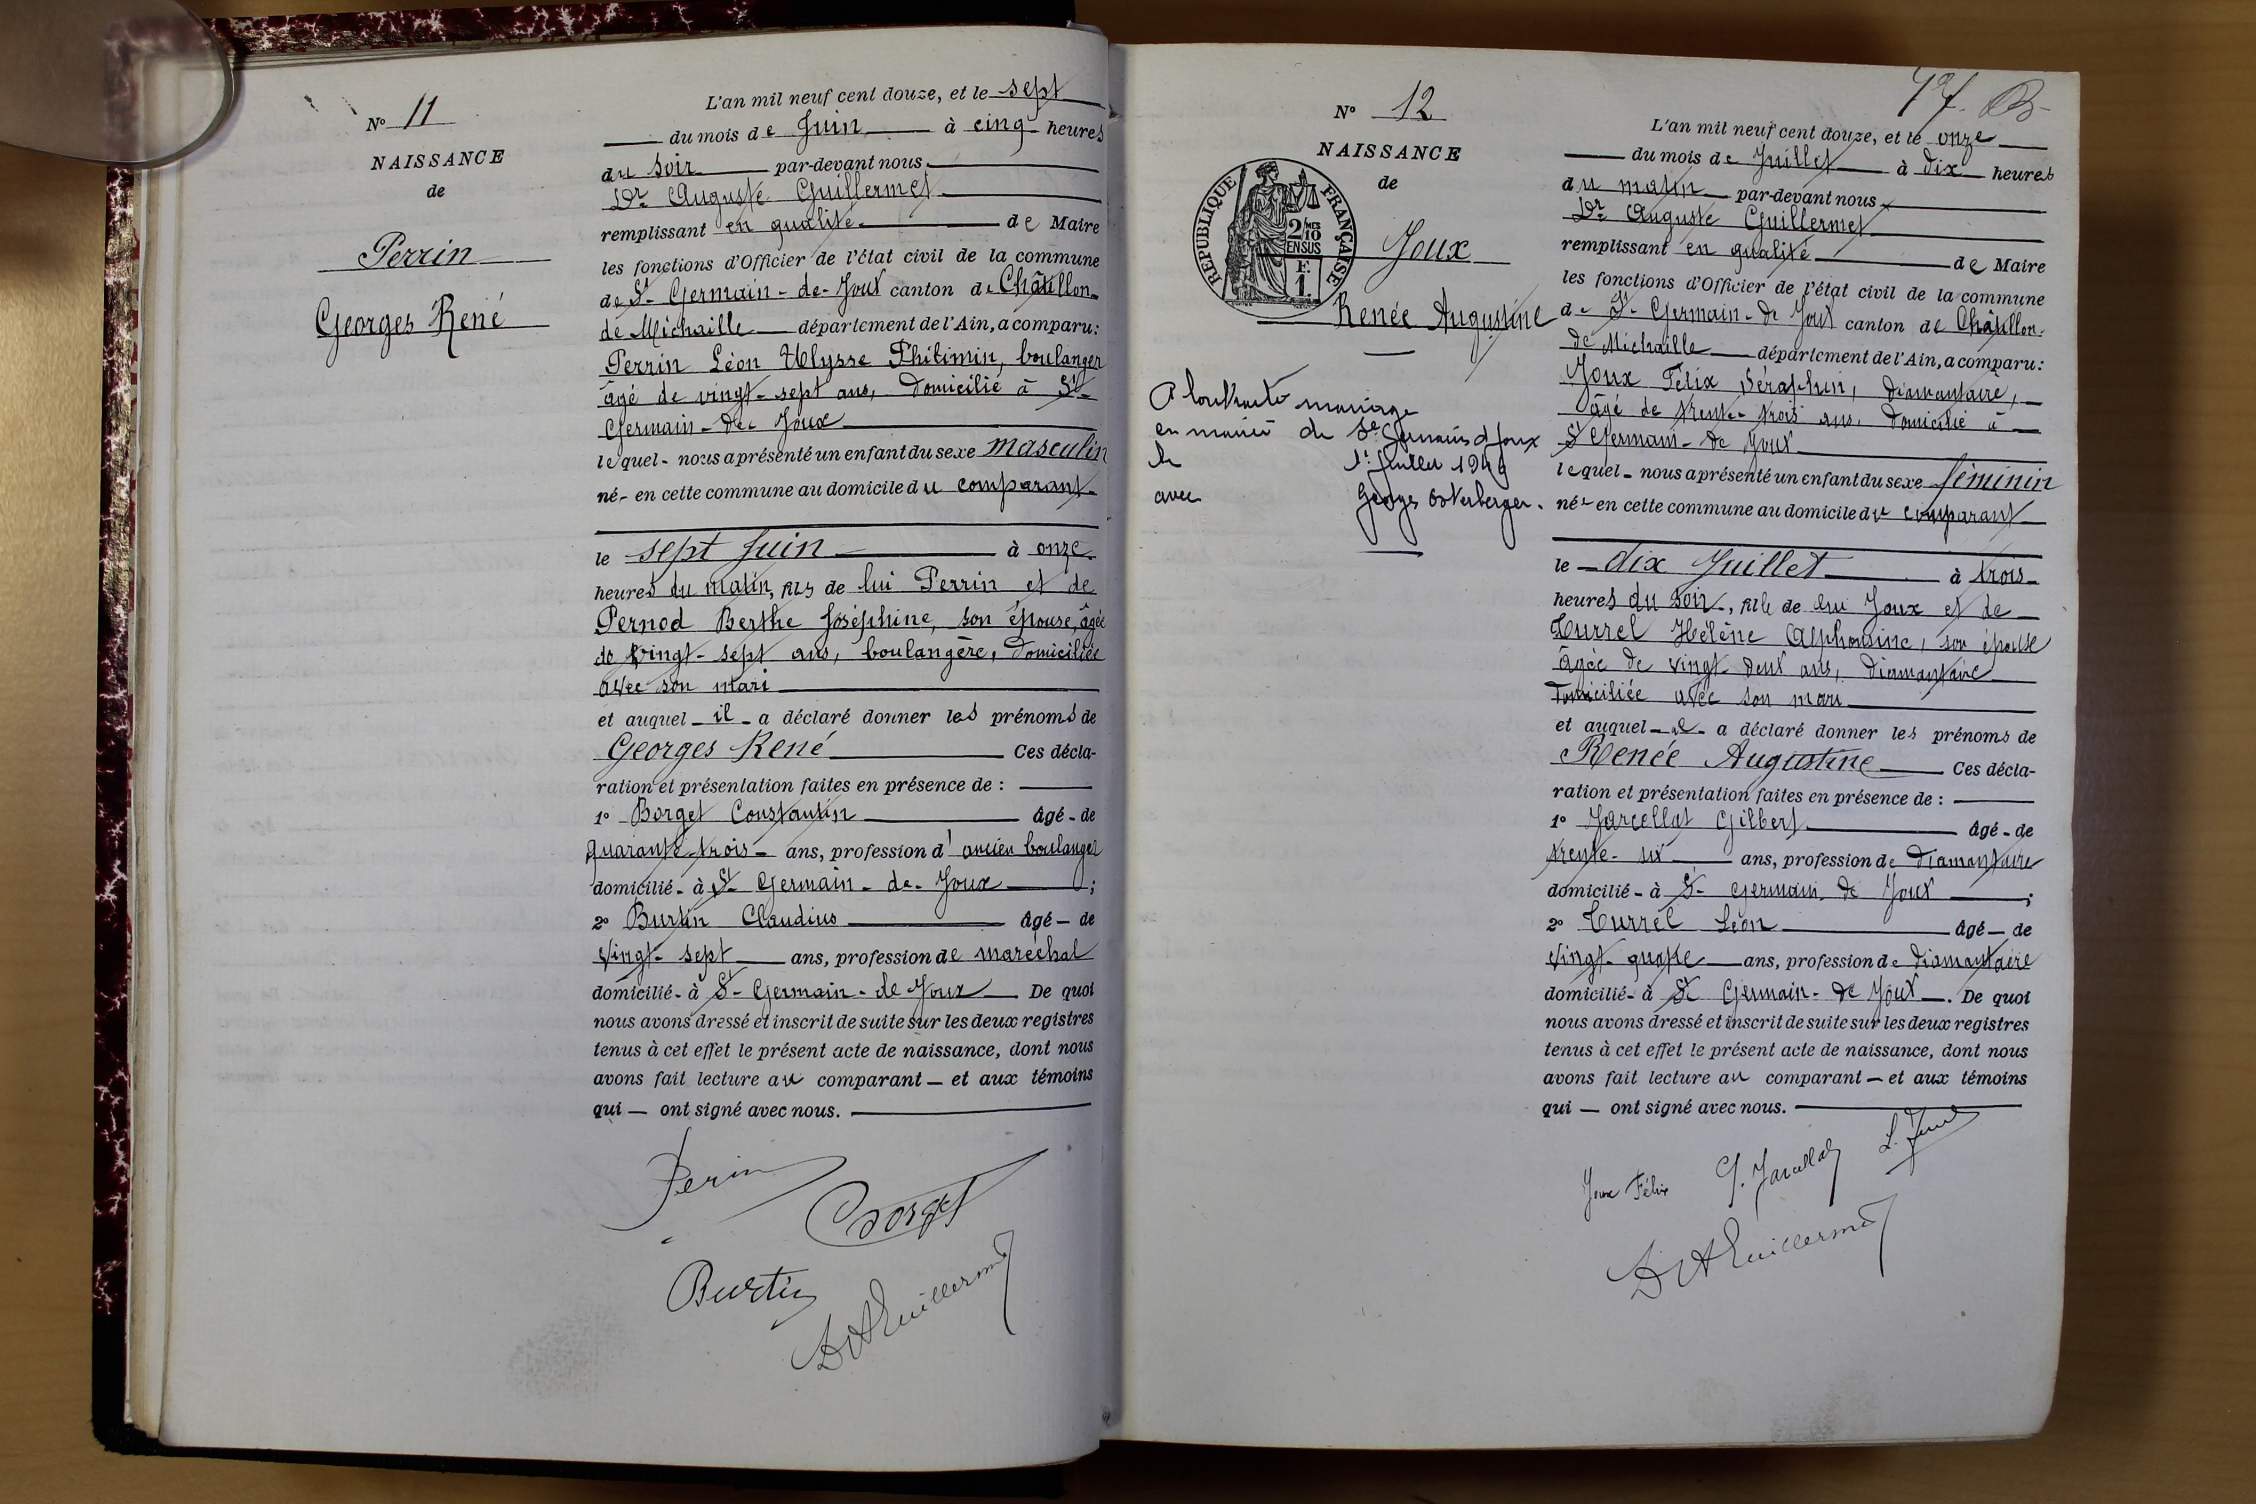 N° 11
NAISSANCE
de
Perrin
Georges René
L'an mil neuf cent douze, et le sept
du mois de Juin à cinq heures
du soir par-devant nous
Dr Auguste Guillermet
remplissant en qualité de Maire
les fonctions d'Officier de l'état civil de la commune
de St Germain-de-Joux canton de Châtillon-
de Michaille département de l'Ain, a comparu:
Perrin Léon Ulysse Philimin, boulanger
âgé de vingt-sept ans, domicilié à St-
Germain-de-Joux
lequel - nous a présenté un enfant du sexe masculin
né - en cette commune au domicile du comparant
le sept Juin à onze
heures du matin, fils de lui Perrin et de
Pernod Berthe Joséphine, son épouse, âgée
de vingt-sept ans, boulangère, domiciliée
avec son mari
et auquel - il - a déclaré donner les prénoms de
Georges René Ces décla-
ration et présentation faites en présence de :
1° Borget Constantin âgé - de
quarante-trois - ans, profession d'ancien boulanger
domicilié - à St Germain-de-Joux ;
2° Burtin Claudius âgé - de
vingt-sept ans, profession de maréchal
domicilié - à St-Germain-de-Joux De quoi
nous avons dressé et inscrit de suite sur les deux registres
tenus à cet effet le présent acte de naissance, dont nous
avons fait lecture au comparant - et aux témoins
qui - ont signé avec nous.
Perrin
Borget
Burtin
Dr A Guillermet
N° 12
NAISSANCE
de
RÉPUBLIQUE FRANÇAISE
2/10 MES
EN SUS
F.
1.
Joux
Renée Augustine
A contracté mariage
en mairie de St Germain d Joux
le 1er Juillet 1949
avec Georges Osterberger.
L'an mil neuf cent douze, et le onze
du mois de Juillet à dix heures
du matin par-devant nous
Dr Auguste Guillermet
remplissant en qualité de Maire
les fonctions d'Officier de l'état civil de la commune
de St Germain-de Joux canton de Châtillon-
de Michaille département de l'Ain, a comparu:
Joux Félix Séraphin, diamantaire,
âgé de trente-trois ans, domicilié à
St Germain-de Joux
lequel - nous a présenté un enfant du sexe féminin
née - en cette commune au domicile du comparant
le dix Juillet à trois
heures du soir, fille de lui Joux et de
Turrel Hélène Alphonsine, son épouse
âgée de vingt-deux ans, diamantaire
domiciliée avec son mari
et auquel - il - a déclaré donner les prénoms de
Renée Augustine Ces décla-
ration et présentation faites en présence de :
1° Jarcellat Gilbert âgé - de
trente-six ans, profession de diamantaire
domicilié - à St-Germain-de Joux ;
2° Turrel Léon âgé - de
vingt-quatre ans, profession de diamantaire
domicilié - à St Germain-de Joux. De quoi
nous avons dressé et inscrit de suite sur les deux registres
tenus à cet effet le présent acte de naissance, dont nous
avons fait lecture au comparant - et aux témoins
qui - ont signé avec nous.
Joux Félix G. Jarcellat
Dr A Guillermet